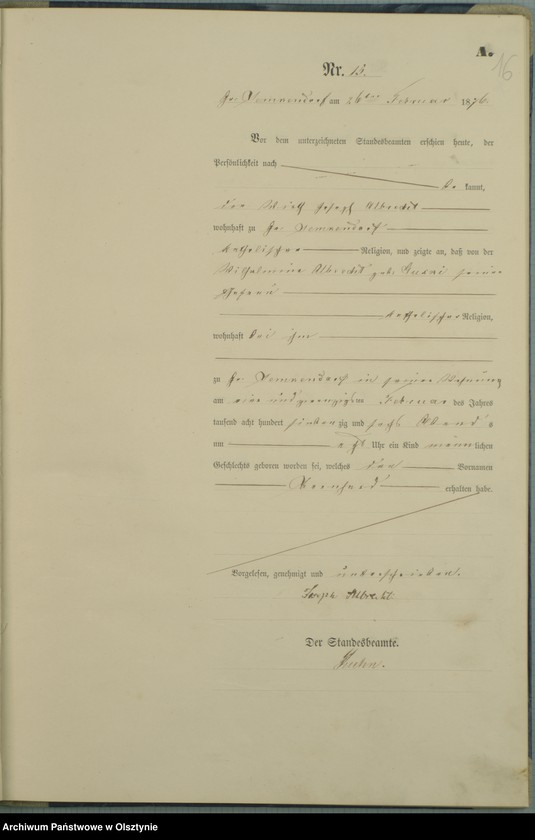 A.
16
Nr. 13.
Gr. am 26ten Februar 1876.
Vor dem unterzeichneten Standesbeamten erschien heute, der
Persönlichkeit nach
be kannt,
der Wirth Joseph Albrecht
wohnhaft zu Gr.
katholischer Religion, und zeigte an, daß von der
Wilhelmine Albrecht geb. seiner
Ehefrau
katholischer Religion,
wohnhaft bei ihm
zu Gr. in seiner Wohnung
am ein und zwanzigsten Februar des Jahres
tausend acht hundert siebenzig und sechs Abends
um Uhr ein Kind männlichen
Geschlechts geboren worden sei, welches den Vornamen
Bernhard erhalten habe.
Vorgelesen, genehmigt und unterschrieben.
Joseph Albrecht
Der Standesbeamte.
Archiwum Państwowe w Olsztynie